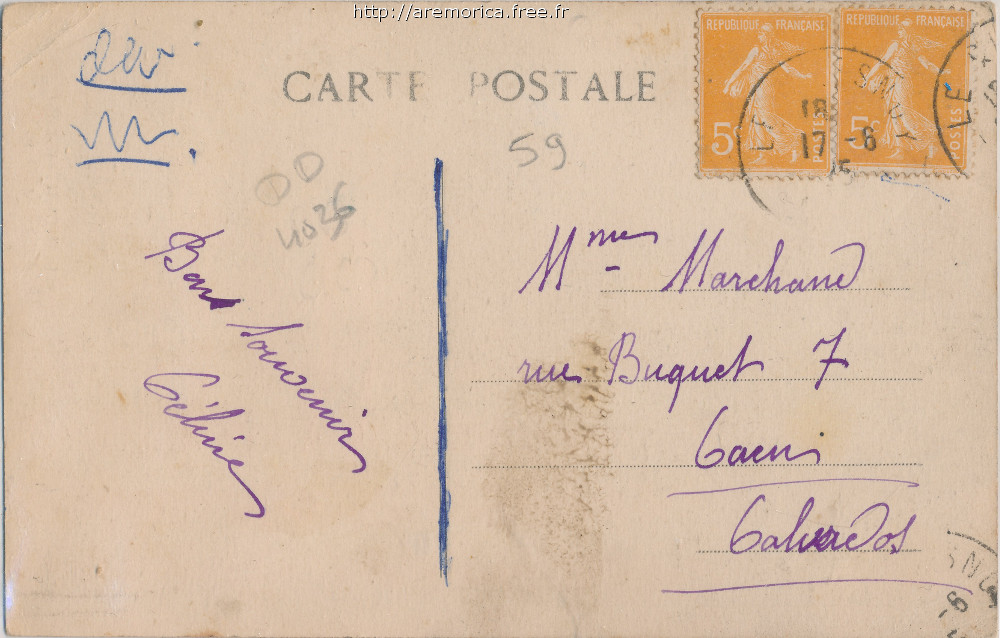 http://aremorica.free.fr
CARTE POSTALE
REPUBLIQUE FRANÇAISE
5
POSTES
REPUBLIQUE FRANÇAISE
5c
POSTES
18
17-8
59
4026
Bon Souvenir
Céline
Mme Marchand
rue Buquet 7
Caen
Calvados